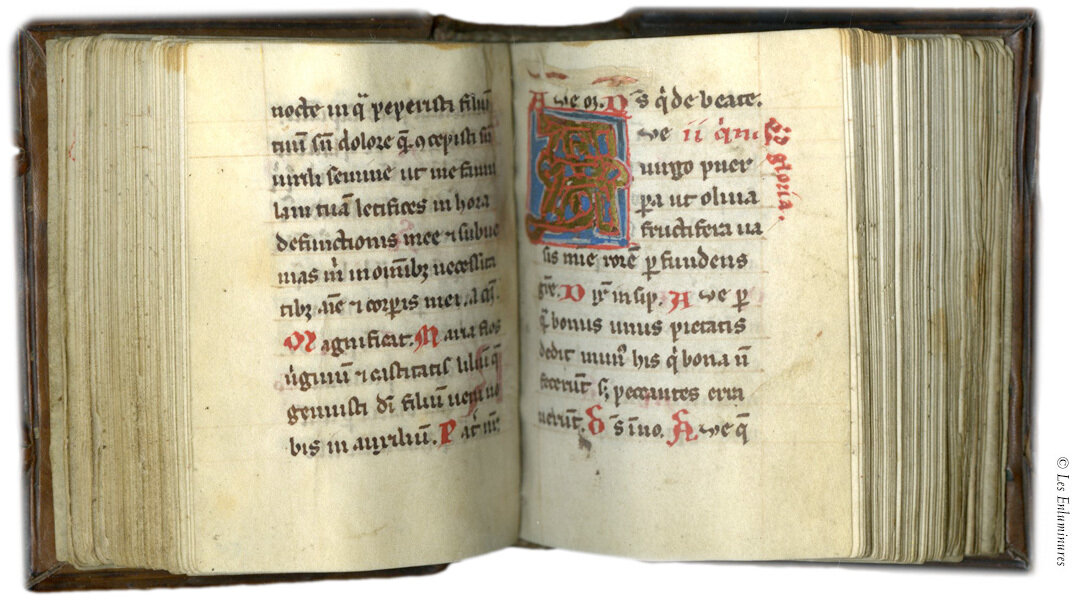 nocte in q̄ peperisti filiū
tuū sn̄ dolore q̄ ꝯcepisti sn̄
uirili semine ut me famu
lam tuā letifices in hora
defunctionis mee ⁊ subue
nias m̄ in om̄ibꝫ necessita
tibꝫ aīe ⁊ corꝑis mei. a
Magnificat. Maria flos
uirginū ⁊ castitatis liliū q̄
genuisti di filiū ueni no
bis in auxiliū. Pat nr̄
Aue oꝛ. D s q de beate.
ue ii
gloria.
uirgo puer
ꝑa ut oliua
fructifera ua
sis mie rorē ꝑfundens
gr̄e. D insip. Aue ꝑ
q̄ bonus unus pietatis
dedit his q bona n̄
fecerūt sꝫ peccantes erra
uerūt. Ds ī no. Aue q̄
© Les Enluminures